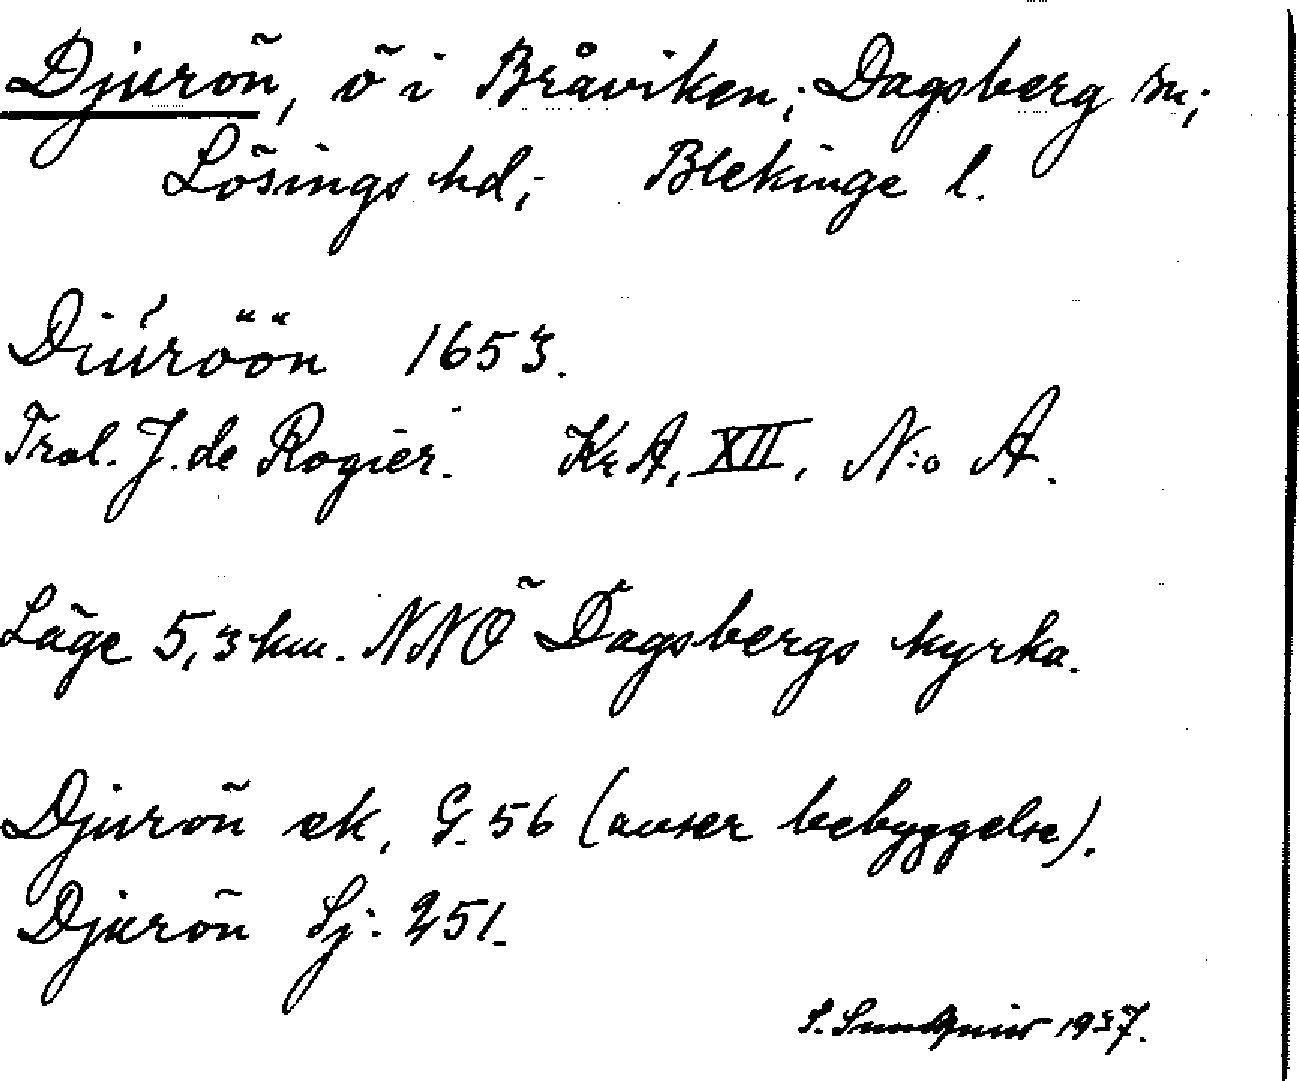 Djurön, ö i Bråviken; Dagsberg sn;
Lösings hd; Blekinge l.
Diúröön 1653.
Trol. J. de Rogier. Kr A, XII, N:o A.
Läge 5,3 km. NNÖ Dagsbergs kyrka.
Djurön ek. G. 56 (avser bebyggelse).
Djurön Sj: 251.
S. Sundqvist 1937.